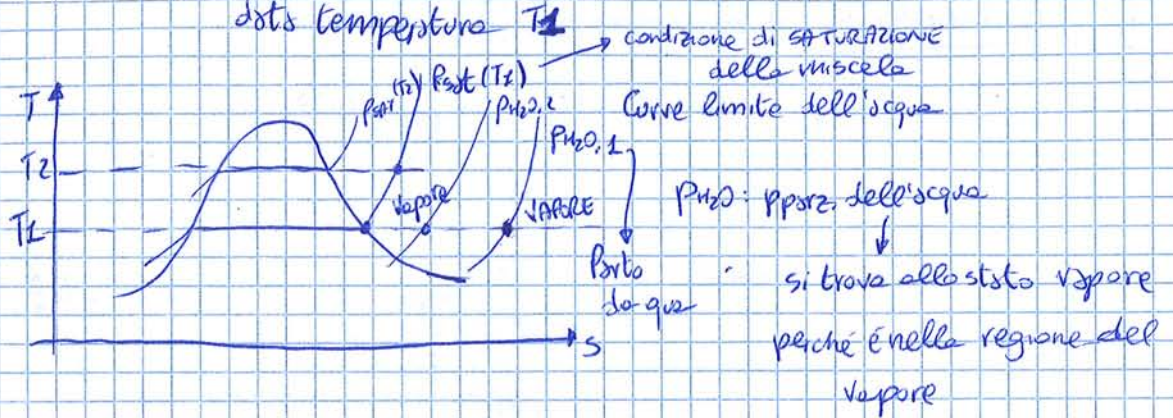 data temperatura T1
condizione di SATURAZIONE
della miscela
Curve limite dell'acqua
T
Psat (T2)
Psat (T1)
PH2O,2
PH2O,1
T2
T1
Vapore
VAPORE
PH2O: pparz. dell'acqua
Parto
da qua
si trova allo stato vapore
perché é nella regione del
vapore
s